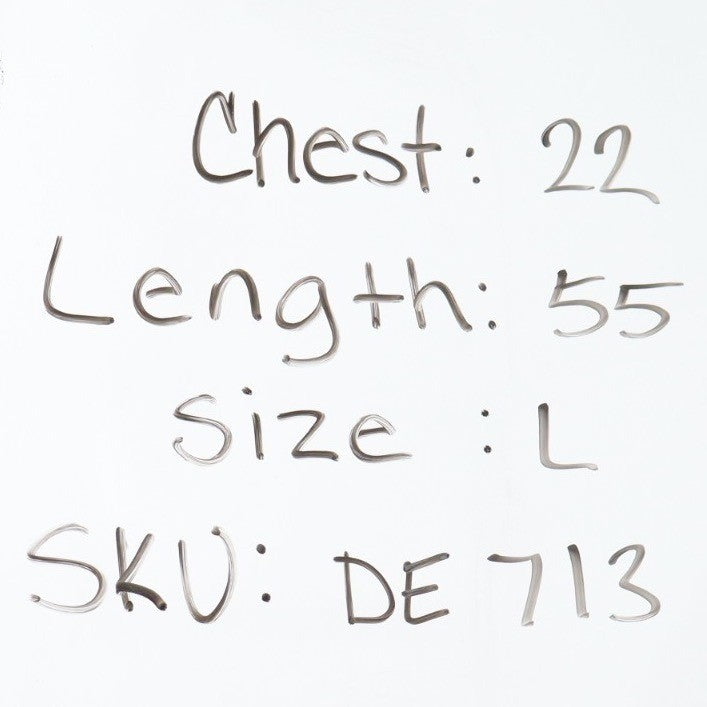 Chest: 22
Length: 55
Size : L
SKU: DE 713